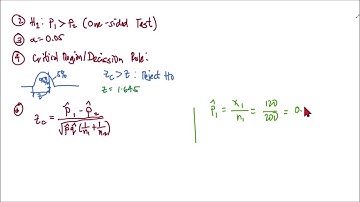 ② H₁: P₁ > P₂ (One-sided Test)
③ α = 0.05
④ Critical Region/Decission Rule:
5%
Zc > Z : Reject H0
Z = 1.645
Zc = (p̂₁ - p̂₂) / √(p̂q̂(1/n₁ + 1/n₂))
p̂₁ = x₁/n₁ = 120/200 = 0.